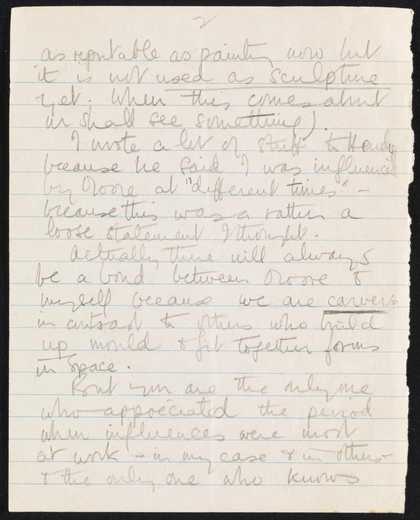 2
as reputable as painting now but
it is not used as sculpture
yet. When this comes about
we shall see something).
I wrote a lot of stuff to Hendy
because he said I was influenced
by Moore at "different times" –
because this was a rather a
loose statement I thought.
Actually there will always
be a bond between Moore &
myself because we are carvers
in contrast to others who build
up mould & fit together forms
in space.
But you are the only one
who appreciated the period
when influences were most
at work – in my case & in others
& the only one who knows